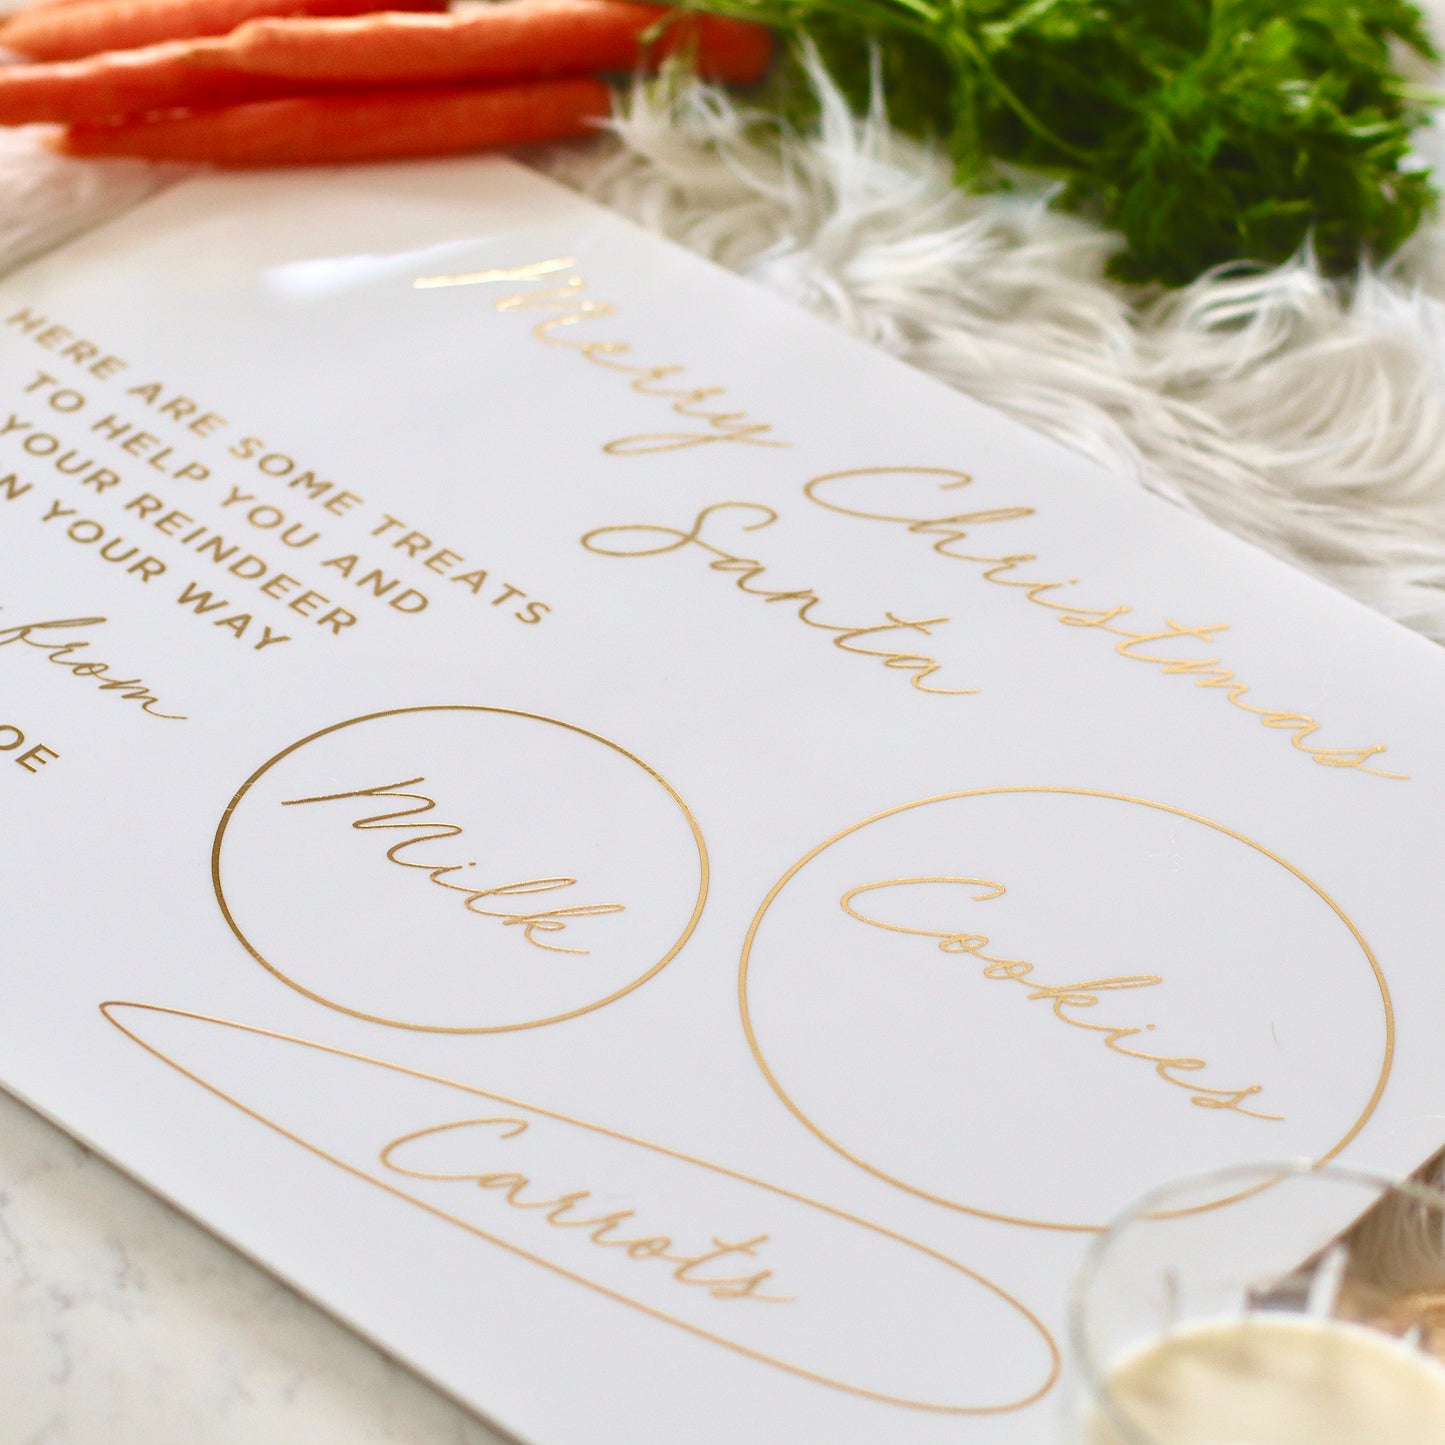 Merry Christmas
Santa
HERE ARE SOME TREATS
TO HELP YOU AND
YOUR REINDEER
YOUR WAY
from
Milk
Cookies
Carrots